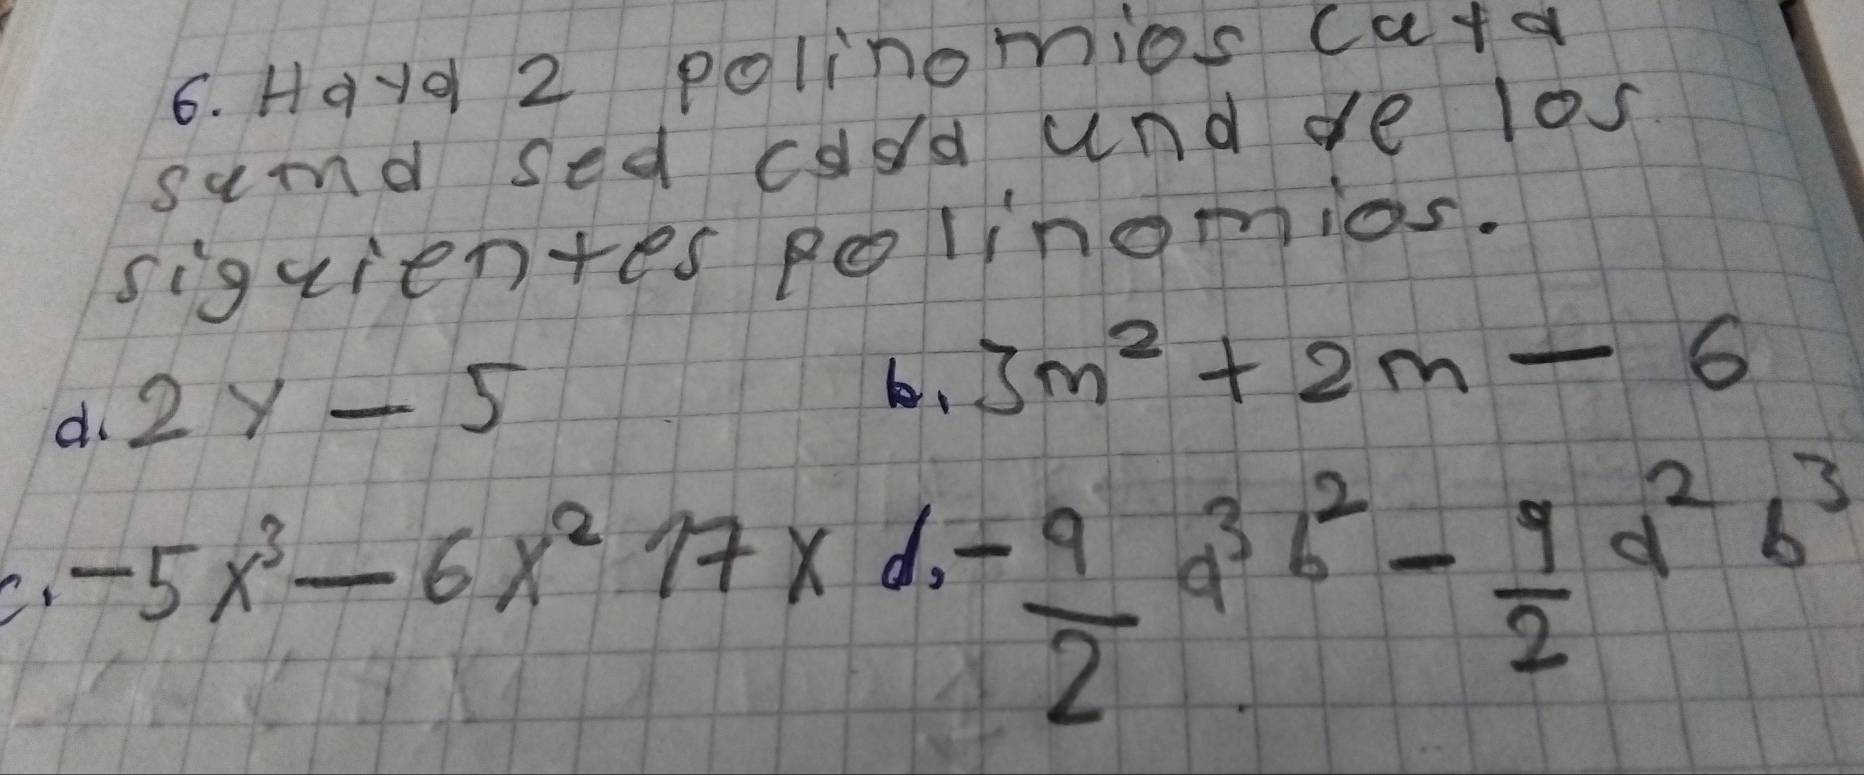 6. Haya 2 polinomios cuya
suma sea cada una de los
siguientes polinomios.
a. 2y - 5 b. 3m² + 2m - 6
c. -5x³ - 6x² 17x d. -9/2 a³b² - 9/2 a²b³